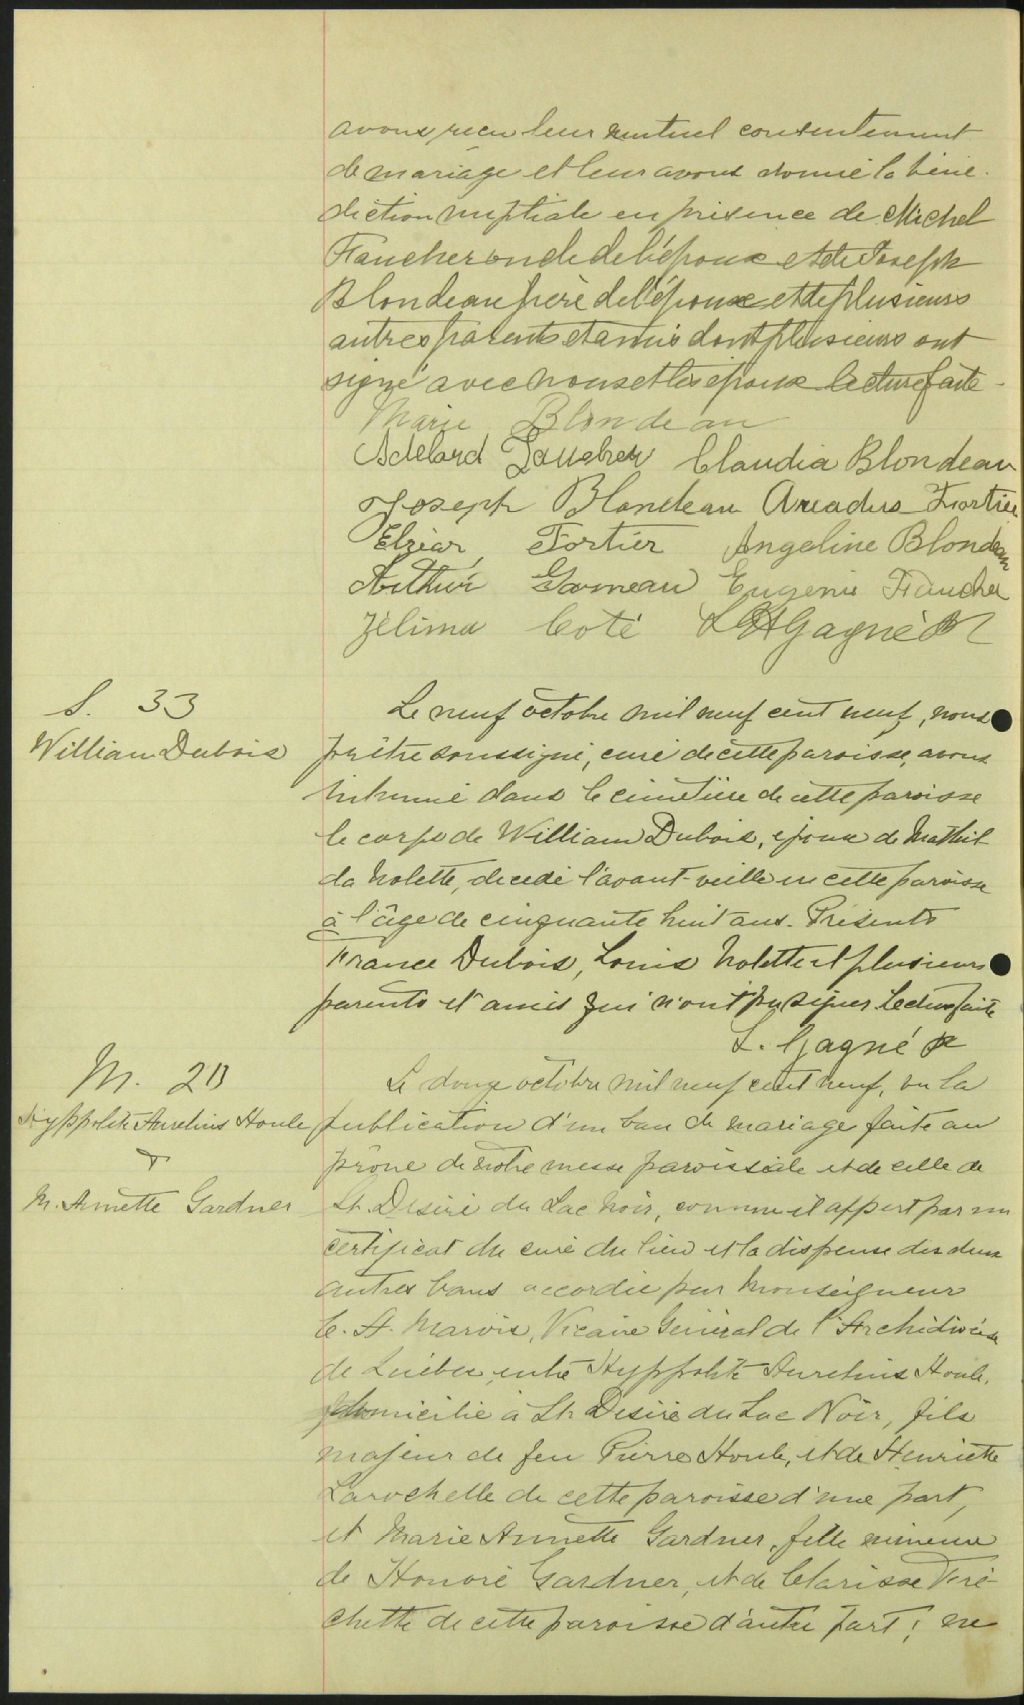 avons reçu leur mutuel consentement
de mariage et leur avons donné la béné-
diction nuptiale en présence de Michel
Faucher oncle de l'époux et de Joseph
Blondeau père de l'épouse et de plusieurs
autres parents et amis dont plusieurs ont
signé avec nous et les époux lecture faite -
Marie Blondeau
Adelard Faucher Claudia Blondeau
Joseph Blondeau Amadus Fortier
Elzéar Fortier Angeline Blondeau
Arthur Garneau Eugenie Faucher
Zélima Coté Gagné
S. 33
William Dubois
Le neuf octobre mil neuf cent neuf, nous
prêtre soussigné, curé de cette paroisse, avons
inhumé dans le cimetière de cette paroisse
le corps de William Dubois, époux de Mathil-
da Nolette, décédé l'avant-veille en cette paroisse
à l'âge de cinquante huit ans. Présents
France Dubois, Louis Nolette et plusieurs
parents et amis qui n'ont pu signer. Lecture faite
L. Gagné
M. 20
Hyppolite Aurelius Houle
&
M. Annette Gardner
Le douze octobre mil neuf cent neuf, vu la
publication d'un ban de mariage faite au
prône de notre messe paroissiale et de celle de
St. Désiré du Lac Noir, comme il appert par un
certificat du curé du lieu et la dispense des deux
autres bans accordée par Monseigneur
C. A. Marois, Vicaire Général de l'Archidiocèse
de Québec, entre Hyppolite Aurelius Houle,
domicilié à St. Désiré du Lac Noir, fils
majeur de feu Pierre Houle, et de Henriette
Larochelle de cette paroisse d'une part,
et Marie Annette Gardner, fille mineure
de Honoré Gardner, et de Clarisse Fré-
chette de cette paroisse d'autre part; ne